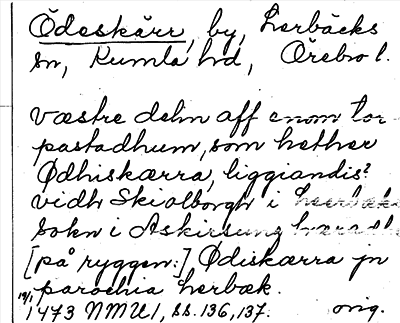 Ödeskärr, by, Lerbäcks
sn, Kumla hd, Örebro l.
væstre delin aff enom tor-
pastadhum, som hether
Ødhiskærra, liggiandis?
vidh Skialborgh i Leerbæks
sokn i Askirsung hæradh
[på ryggen:] Ødiskærra jn
parochia Lerbæk.
19/1 1473 NMU1, ss. 136, 137. orig.